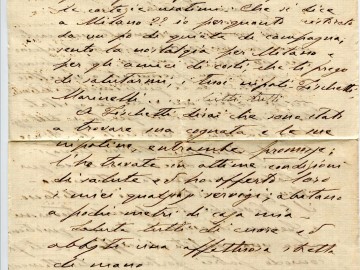 le carte, e mutismi. Che si dice
a Milano?? io per quanto ristorato
da un po di quiete di campagna,
sento la nostalgia per Milano e
per gli amici di costì, che ti prego
di salutarmi, i tuoi nipoti, Fischetti
Marinelli... tutti tutti
A Fischetti dirai che sono stato
a trovare sua cognata e le sue
nipotine, entrambe promosse;
l'ho trovate in ottime condizioni
di salute ed ho offerto loro
i miei qualsiasi servigi; abitano
a pochi metri di casa mia
Saluta tutti di cuore ed
abbiti una affettuosa stretta
di mano